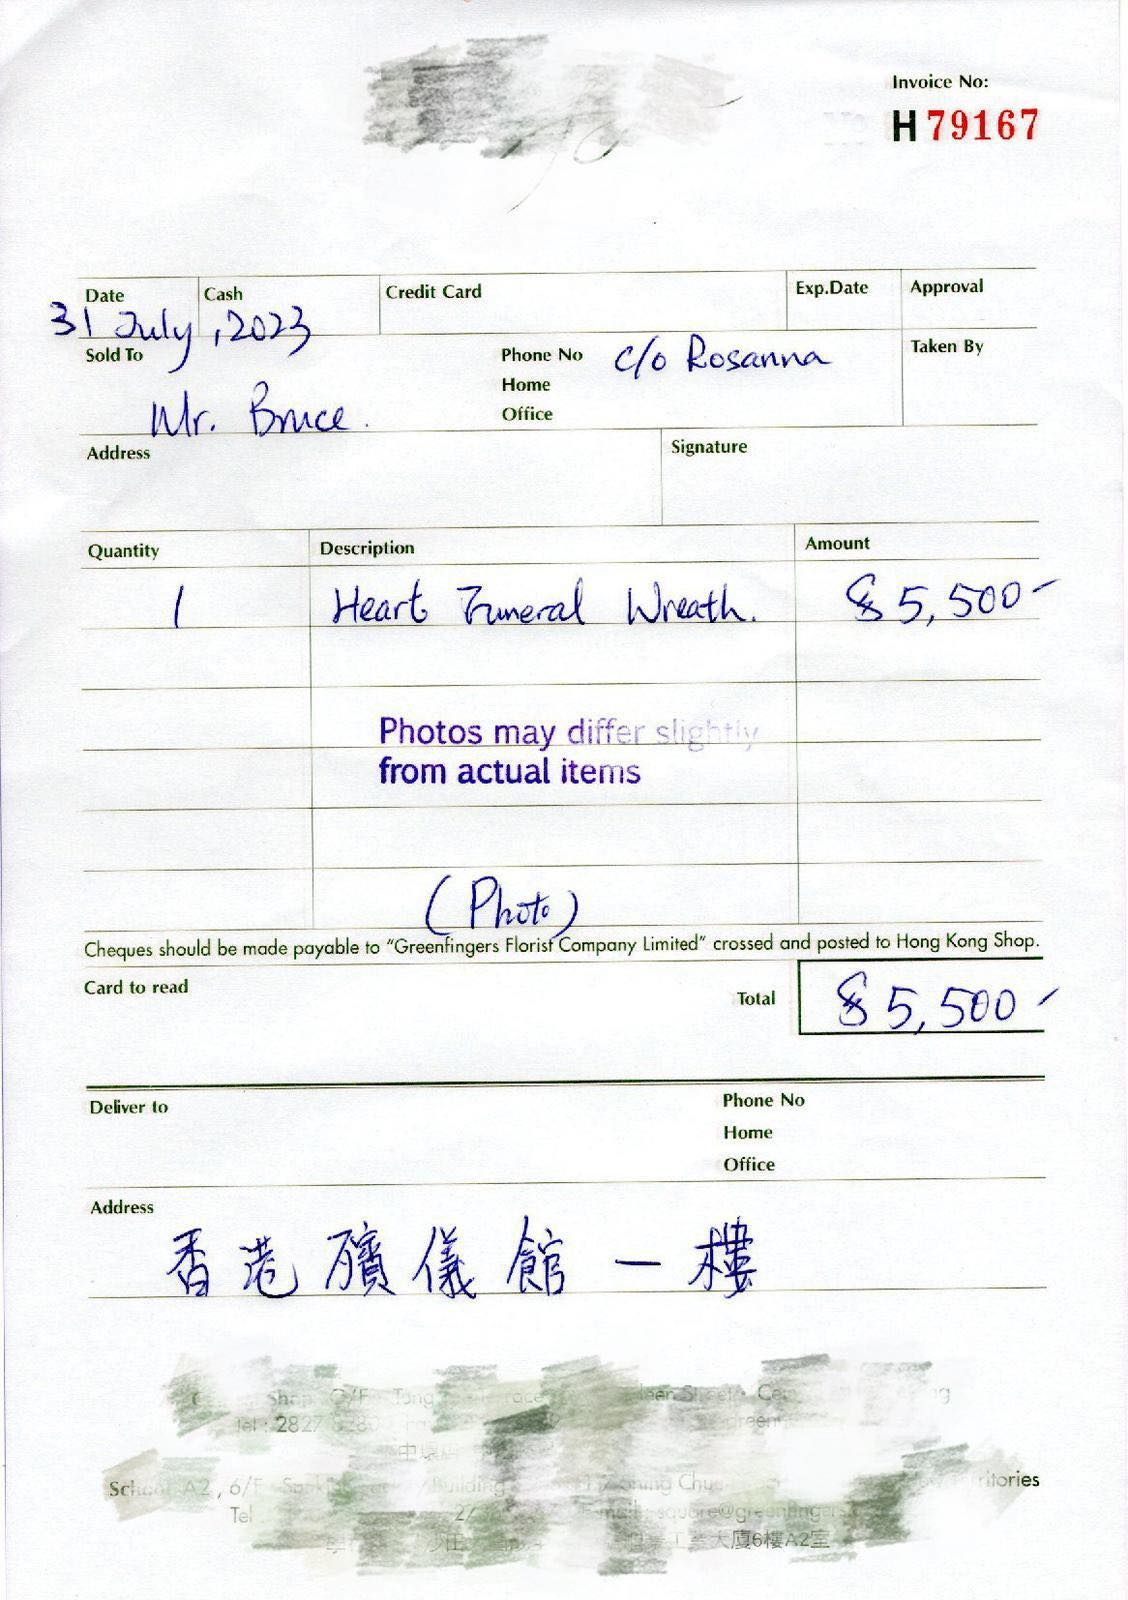 Invoice No:
H 79167
Date Cash Credit Card Exp.Date Approval
31 July, 2023
Sold To Phone No c/o Rosanna Taken By
Home
Mr. Bruce. Office
Address Signature
Quantity Description Amount
1 Heart Funeral Wreath. $5,500-
Photos may differ slightly
from actual items
(Photo)
Cheques should be made payable to "Greenfingers Florist Company Limited" crossed and posted to Hong Kong Shop.
Card to read Total $5,500-
Deliver to Phone No
Home
Office
Address
香港殯儀館一樓
Shop
Tel : 282
中環
A2, 6/F Building ritories
Tel
大廈6樓A2室